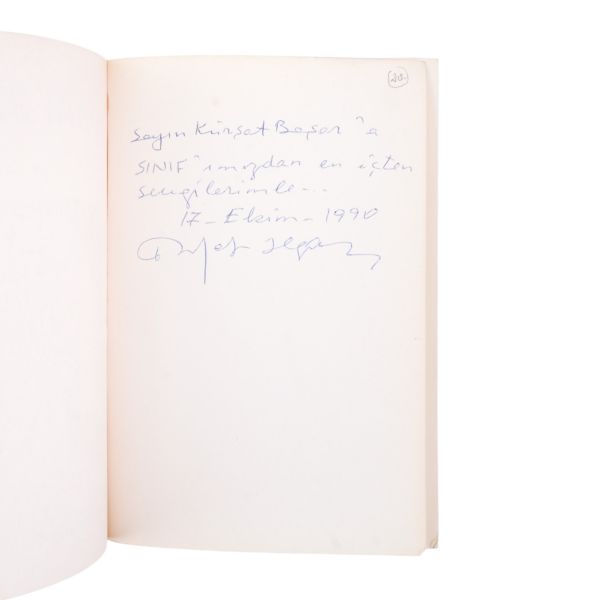 20.
Sayın Kürşat Başar'a
SINIF'ımızdan en içten
sevgilerimle...
17 - Ekim - 1990
Rıfat Ilgaz